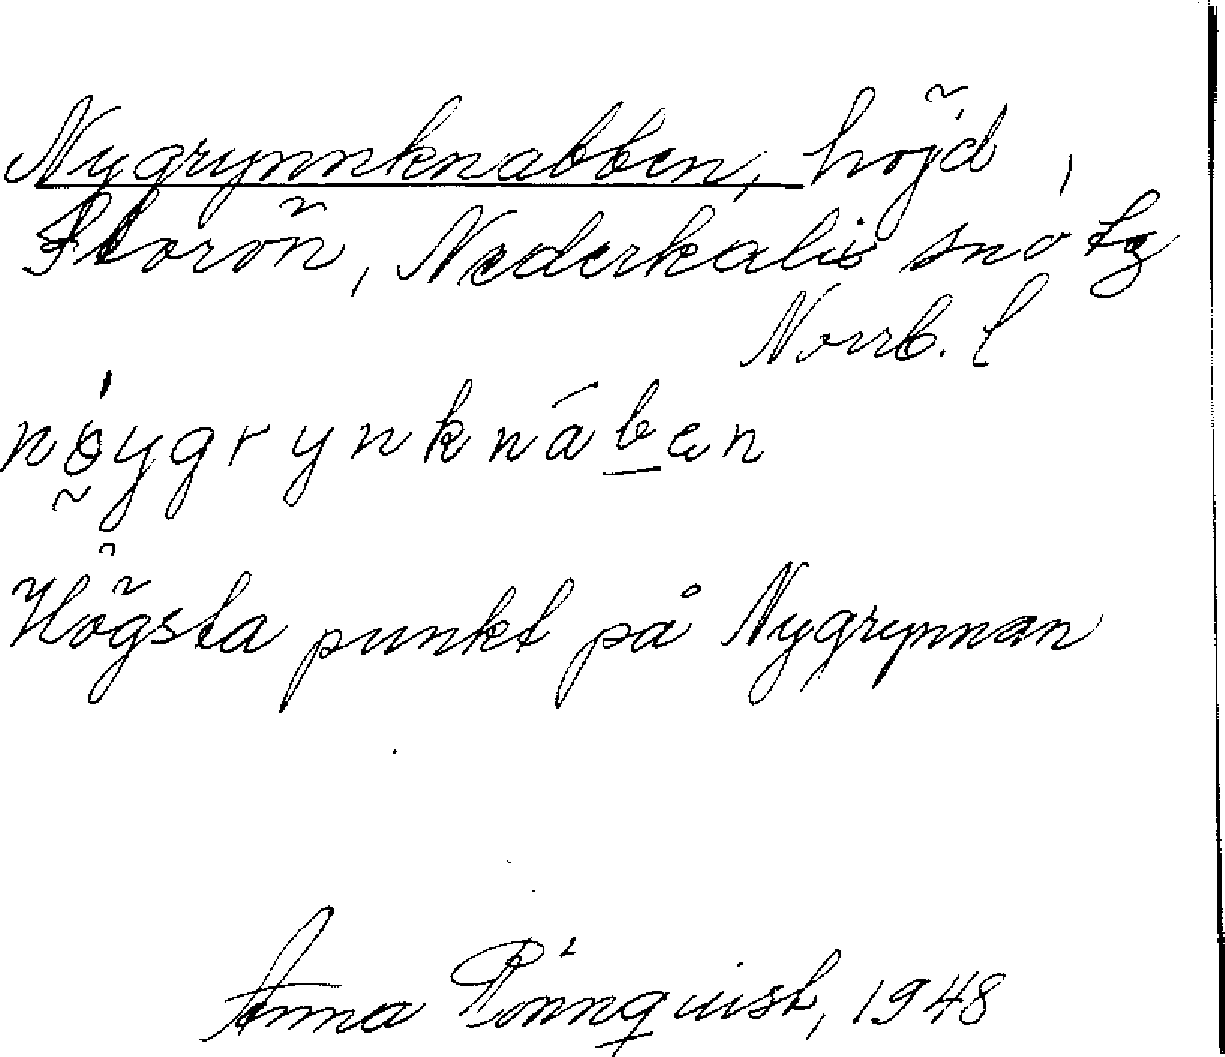 Nygrynnknabben, höjd,
Storön, Nederkalix sn o tg
Norrb. l
nöygrynknáben
Högsta punkt på Nygrynnan
Anna Rönnquist, 1948